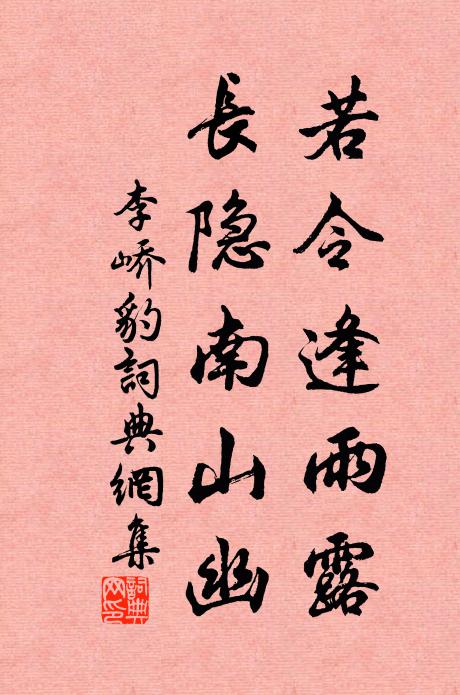 若令逢雨露
長隐南山幽
李峤豹詞典網集
詞典
网印